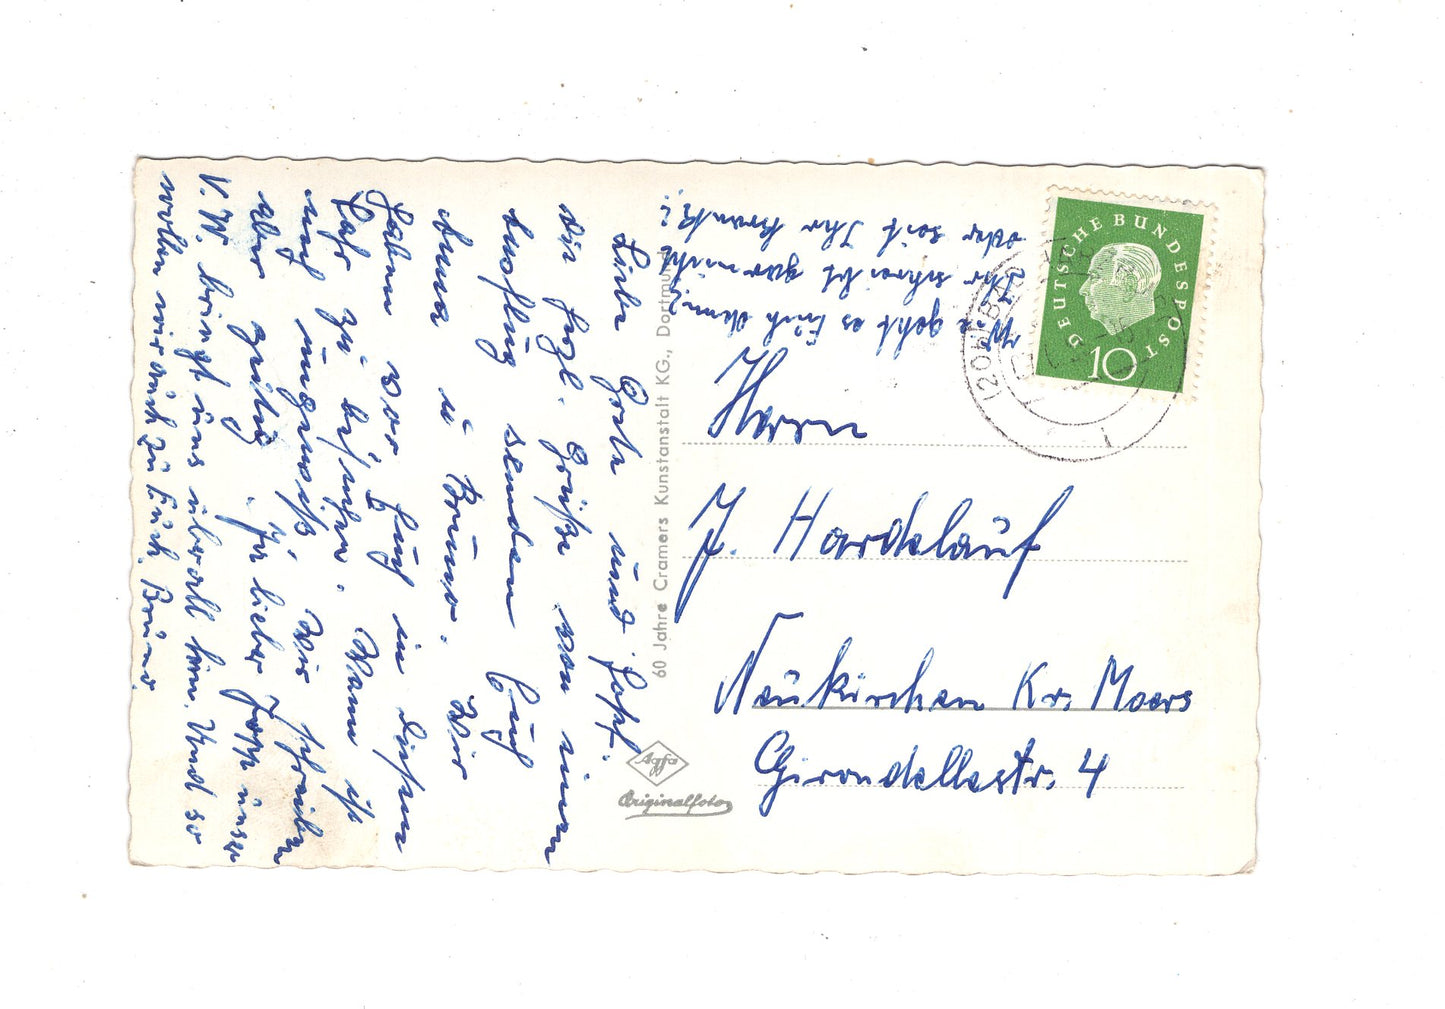 Liebe Grete und Josef.
Die herzl. Grüße von einem
Ausflug senden Euch
Anna u Bruno. Wir
haben vor Euch in diesem
Jahr zu besuchen. Wann ist
noch ungewiß, Wir schreiben
aber zeitig. Ihr lieber Jopp unser
V.W. bringt uns überall hin. Und so
wollen wir auch zu Euch. Bruno.
Wie geht es Euch denn?
Ihr schreibt gar nicht
oder seit Ihr krank?
DEUTSCHE BUNDESPOST
10
Herrn
J. Hardelauf
Neukirchen Kr. Moers
Girondellestr. 4
60 Jahre Cramers Kunstanstalt KG., Dortmund
Agfa
Originalfoto